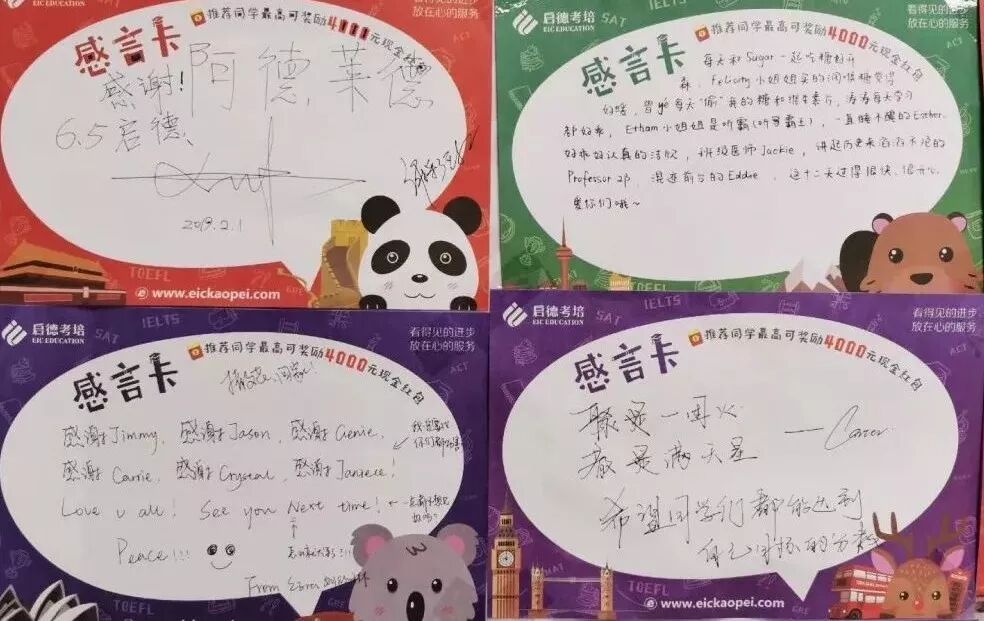 看得见的进步
放在心的服务
推荐同学最高可奖励4000元现金红包
感言卡
感谢!阿德莱德
6.5启德
2019.2.1
TOEFL
www.eickaopei.com
启德考培 SAT
EIC EDUCATION
看得见的进步
放在心的服务
推荐同学最高可奖励4000元现金红包
ACT
感言卡
每天和Sugar一起吃糖的开
森,Felicity小姐姐买的润喉糖觉得
好啥,曾yé每天"偷"我的糖和
涛涛每天学习
都好乖,Etham小姐姐是听霸(听写霸王),一直睡不醒的Esther,
好乖好认真的洁欣,班级医师Jackie,讲起历史来滔滔不绝的
Professor zp,混迹前台的Eddie,这十二天过得很快、很开心,
爱你们哦~
启德考培 SAT IELTS
EIC EDUCATION
看得见的进步
放在心的服务
推荐同学最高可奖励4000元现金红包
ACT
感言卡
感谢Jimmy,感谢Jason,感谢Genie,
感谢Carrie,感谢Crystal,感谢Janice!
Love u all! See you Next time!
Peace!!!
From
TOEFL
GRE
启德考培 SAT IELTS
EIC EDUCATION
看得见的进步
放在心的服务
推荐同学最高可奖励4000元现金红包
ACT
感言卡
聚是一团火
散是满天星
希望同学们都能达到
自己目标的分数
TOEFL
GRE
www.eickaopei.com